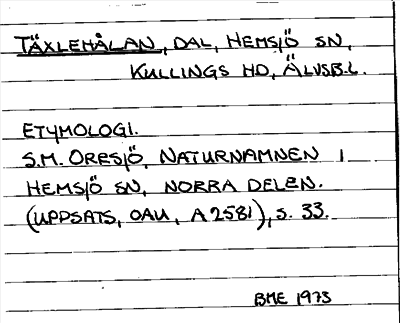 TÄXLEMÅLAN, DAL, HEMSJÖ SN,
KULLINGS HD, ÄLVSB.L.
ETYMOLOGI.
S.M. ORESJÖ, NATURNAMNEN I
HEMSJÖ SN, NORRA DELEN.
(UPPSATS, OAU, A 2581), S. 33.
BME 1973